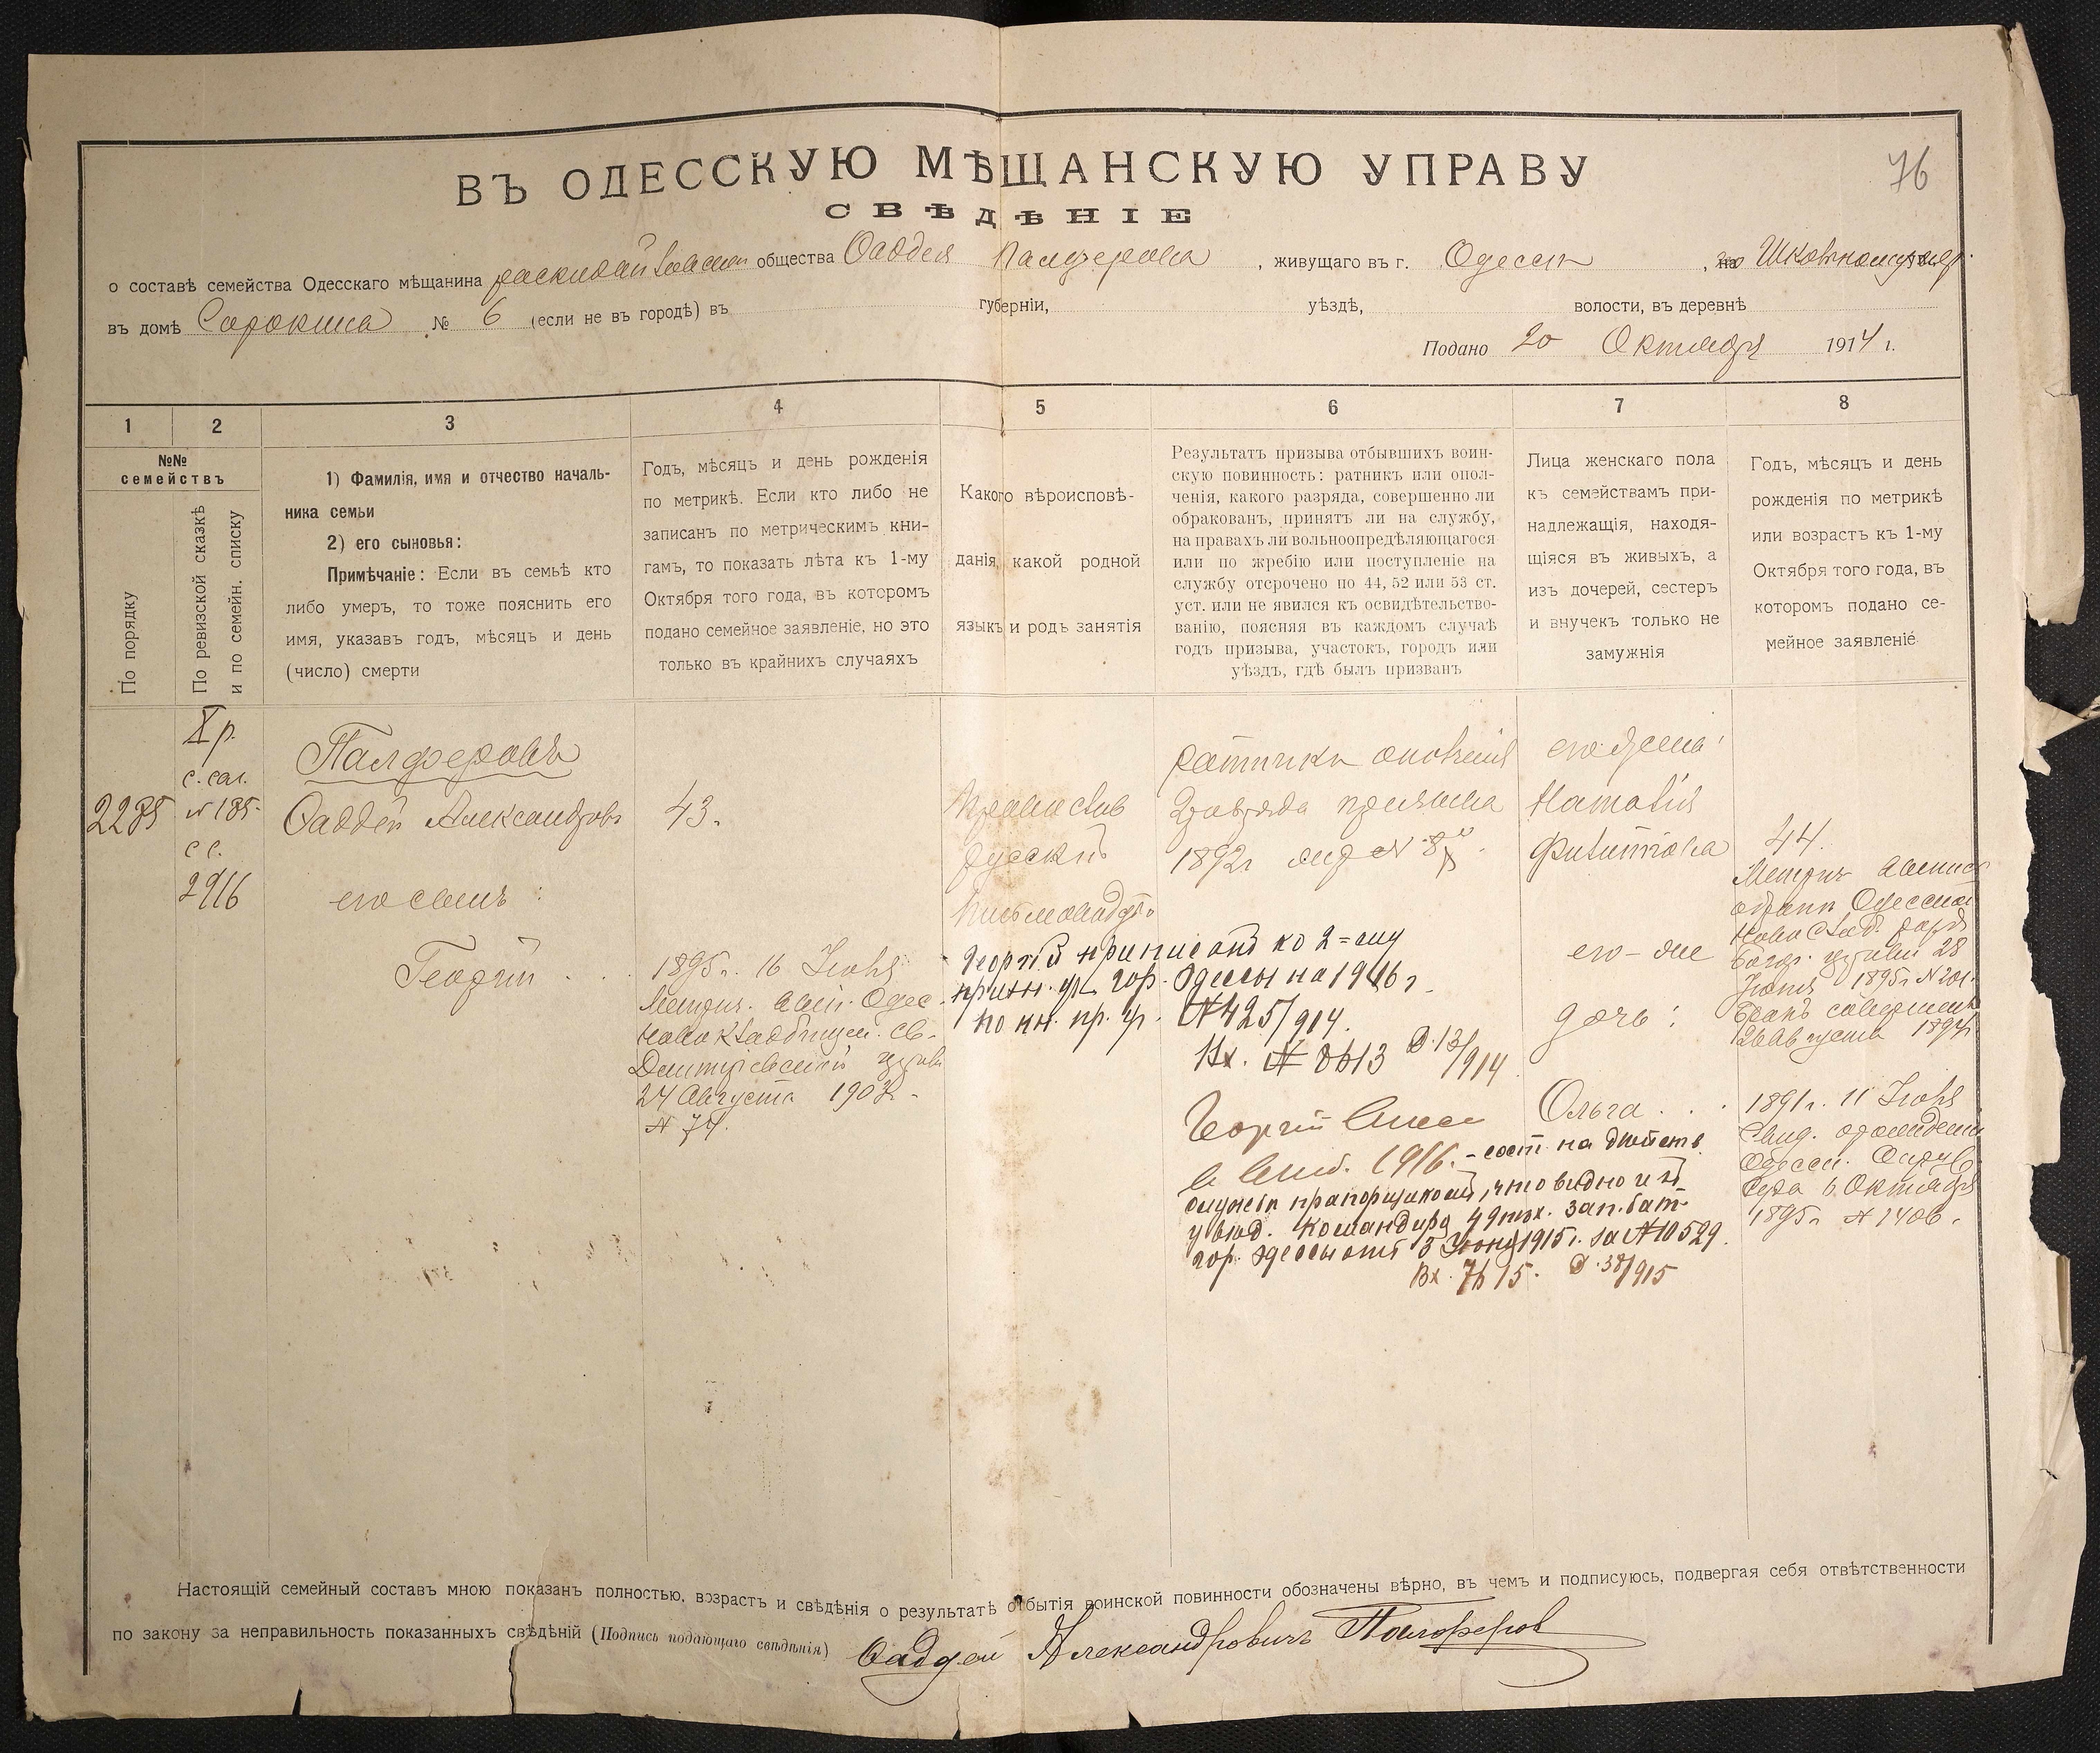 76
ВЪ ОДЕССКУЮ МѢЩАНСКУЮ УПРАВУ
СВѢДѢНІЕ
о составѣ семейства Одесскаго мѣщанина общества Фаддея Палферова, живущаго въ г. Одессѣ, по
въ домѣ Сорокина № 6 (если не въ городѣ) въ губерніи, уѣздѣ, волости, въ деревнѣ
Подано 20 Октября 1914 г.
1 2 3 4 5 6 7 8
№№
семействъ
По порядку
По ревизской сказкѣ
и по семейн. списку
1) Фамилія, имя и отчество началь-
ника семьи
2) его сыновья:
Примѣчаніе: Если въ семьѣ кто
либо умеръ, то тоже пояснить его
имя, указавъ годъ, мѣсяцъ и день
(число) смерти
Годъ, мѣсяцъ и день рожденія
по метрикѣ. Если кто либо не
записанъ по метрическимъ кни-
гамъ, то показать лѣта къ 1-му
Октября того года, въ которомъ
подано семейное заявленіе, но это
только въ крайнихъ случаяхъ
Какого вѣроисповѣ-
данія, какой родной
языкъ и родъ занятія
Результатъ призыва отбывшихъ воин-
скую повинность: ратникъ или опол-
ченія, какого разряда, совершенно ли
обракованъ, принятъ ли на службу,
на правахъ ли вольноопредѣляющагося
или по жребію или поступленіе на
службу отсрочено по 44, 52 или 53 ст.
уст. или не явился къ освидѣтельство-
ванію, поясняя въ каждомъ случаѣ
годъ призыва, участокъ, городъ или
уѣздъ, гдѣ былъ призванъ
Лица женскаго пола
къ семействамъ при-
надлежащія, находя-
щіяся въ живыхъ, а
изъ дочерей, сестеръ
и внучекъ только не
замужнія
Годъ, мѣсяцъ и день
рожденія по метрикѣ
или возрастъ къ 1-му
Октября того года, въ
которомъ подано се-
мейное заявленіе
2285
X р.
с. саг.
№ 185
с с.
2916
Палферовъ
Фаддей Александровъ
его сынъ:
Георгій . .
43.
1895 г. 16 Іюня
Метрич. Одес.
Св.
Димитріевской церкви
24 Августа
№ 74.
Православ
русскій
Ратникъ ополченія
2 разряда призыва
1892 г
Георгій приписанъ ко 2 = му
призн. уч. гор. Одессы на 1916 г.
по кн. пр. уч. № 425/914.
Вх. № 8613 Д. 13/914
Георгій
1916. - сост. на дѣйств.
службѣ прапорщикомъ, что видно изъ
увѣд. командира 49 пѣх. зап. бат.
гор. Одессы отъ 5 Іюня 1915 г. за № 10529.
Вх. 7615. Д. 38/915
его жена:
Наталія
Филиппова
его-же
дочь:
Ольга . . .
44.
28
1895 г. № 201.
Бракъ совершенъ
26 Августа
1891 г. 11 Іюня
Свид. о рожденіи
Одесск. Окруж.
Суда 6 Октября
1895 г. № 1406.
Настоящій семейный составъ мною показанъ полностью, возрастъ и свѣдѣнія о результатѣ отбытія воинской повинности обозначены вѣрно, въ чемъ и подписуюсь, подвергая себя отвѣтственности
по закону за неправильность показанныхъ свѣдѣній (Подпись подающаго свѣдѣнія) Фаддей Александровичъ Палферов